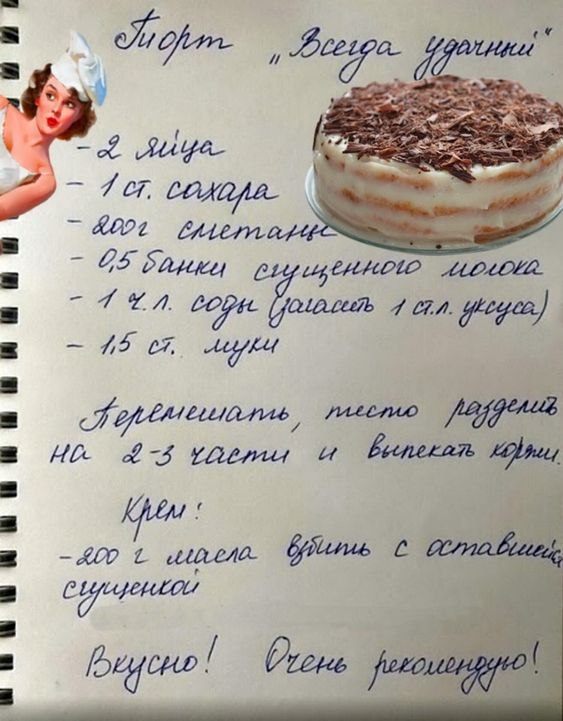 Торт „Всегда удачный“
- 2 яйца
- 1 ст. сахара
- 200г сметаны
- 0,5 банки сгущенного молока
- 1 ч.л. соды (загасить 1 ст.л. уксуса)
- 1,5 ст. муки
Перемешать, тесто разделить
на 2-3 части и выпекать коржи.
Крем:
- 200 г масла взбить с оставшейся
сгущенкой
Вкусно! Очень рекомендую!